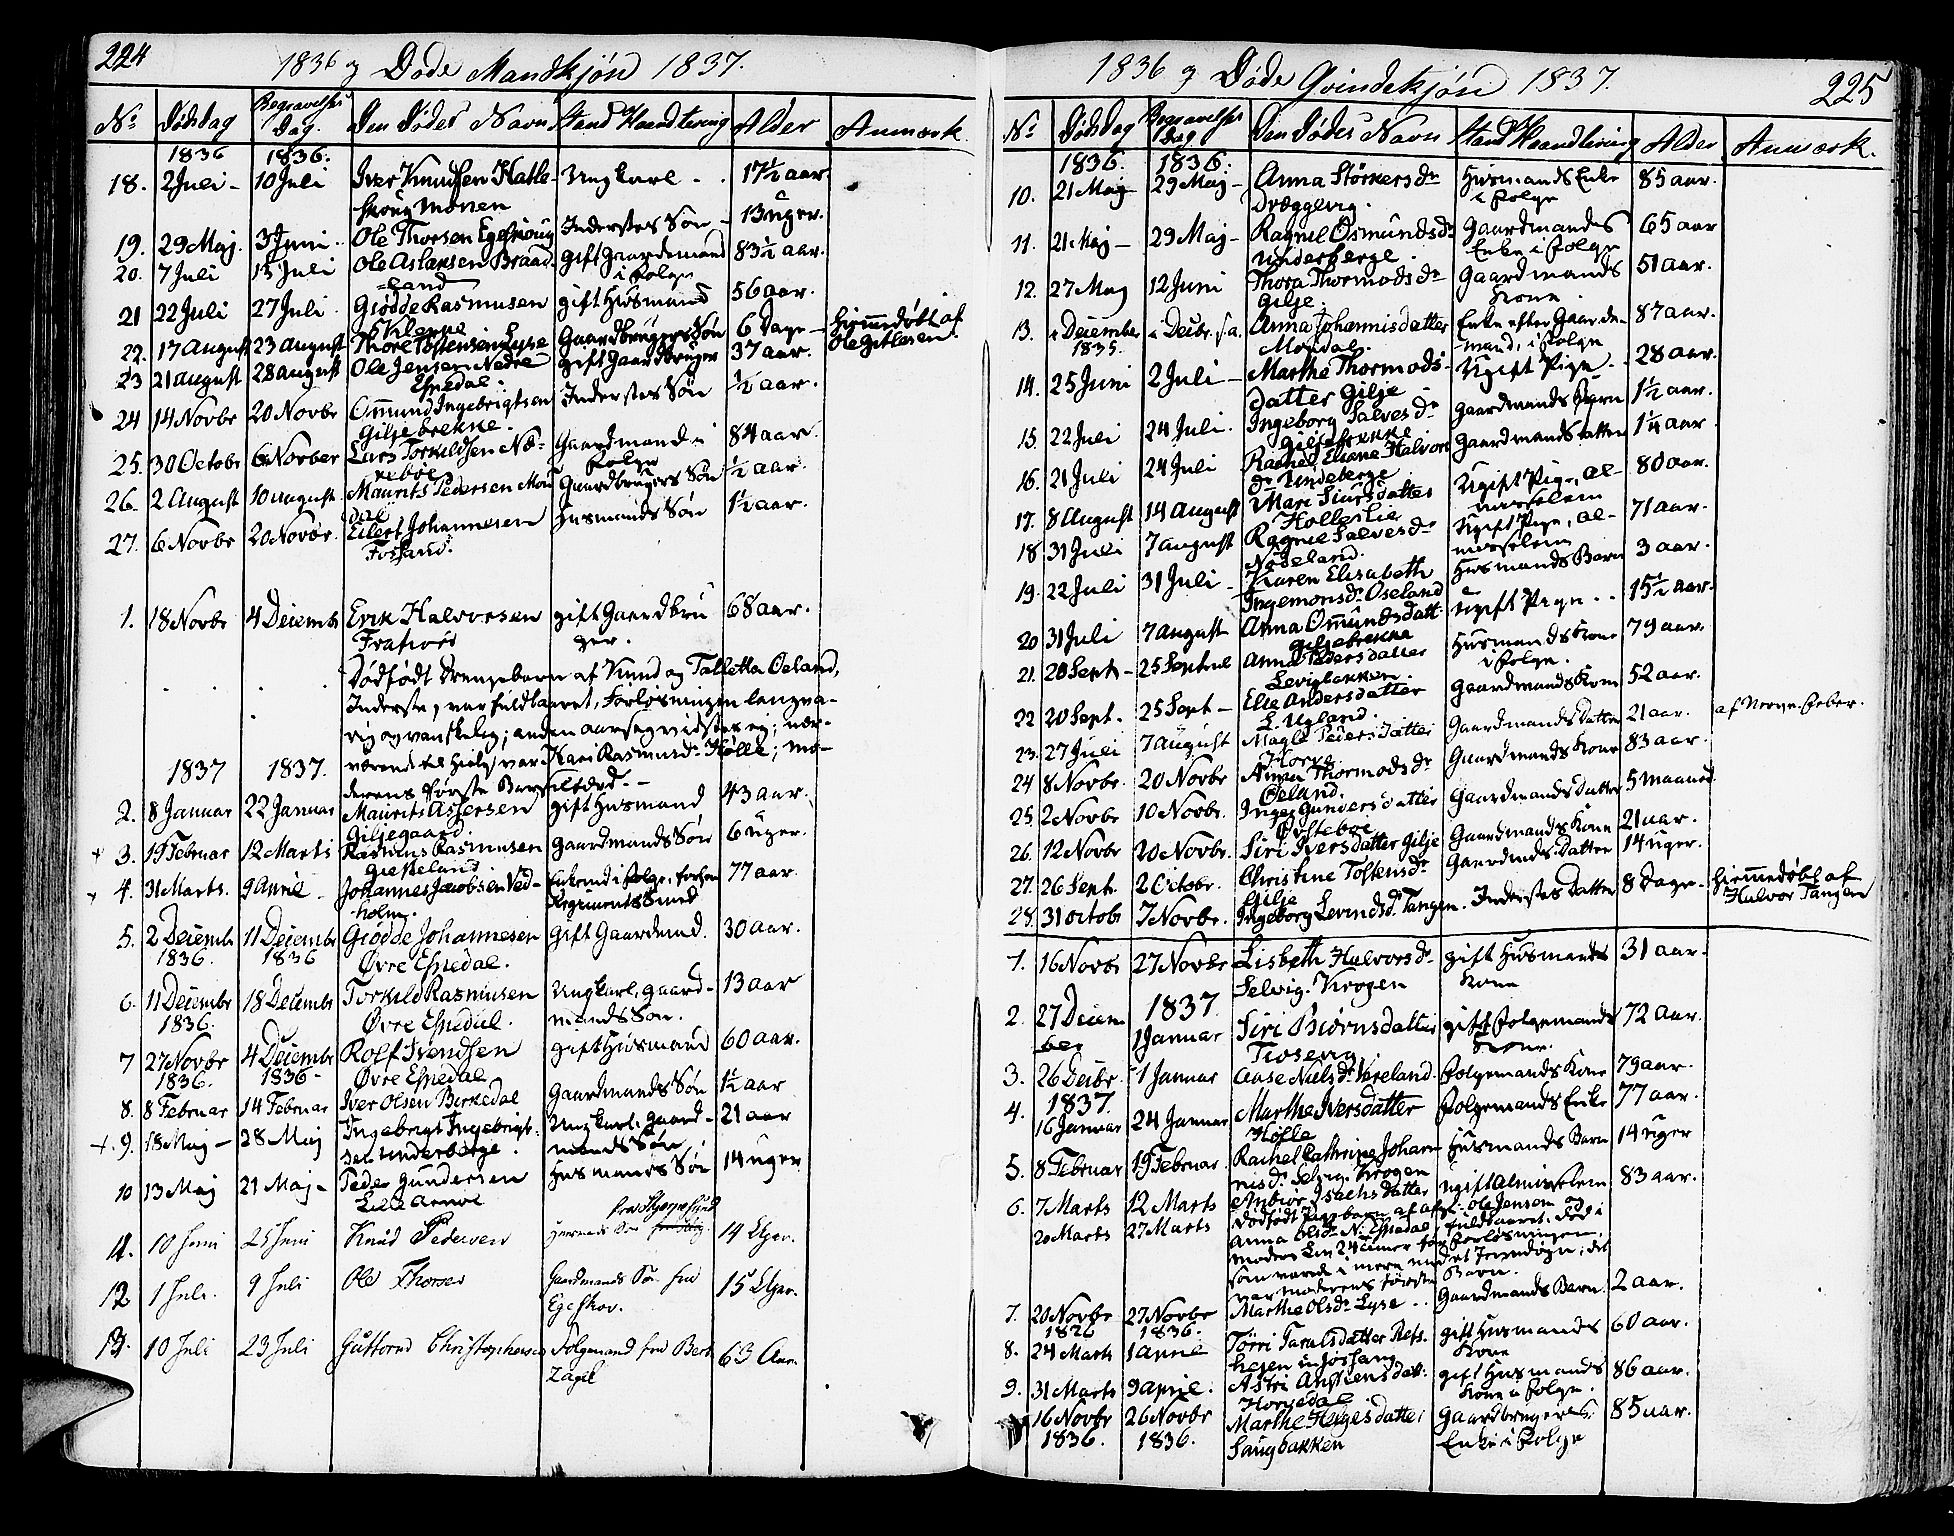 224
1836 og Døde Mandkjøn 1837.
No Dødsdag Begravelses Dag. Den Dødes Navn Stand Haandtering Alder Anmærk.
1836 1836.
18. 2 Juli - 10 Juli Iver Knudsen Hatle- Ungkarl - 17½ aar
skoug Monen
19. 29 Maj. 3 Juni Ole Thorsen Egeskoug Inderstes Søn - 13 uger.
20. 7 Juli 15 Juli Ole Aslaksen Braad- gift Gaardmand 83½ aar.
-land i Folge
21 22 Juli 27 Juli Giødde Rasmusen gift Husmand 56 aar.
22. 17 August 23 August Thore Tostensen Lyse Gaardbrugers Søn 6 Dage - Hjemmedøbt af
Ole
23 21 August 28 August Ole Jensen Nedre gift Gaardbruger 37 aar.
Espedal.
24 14 Novbr 20 Novbr Ommund Ingebrigtsen Inderstes Søn ½ aar.
Giljebrekke.
25. 30 Octobr 6 Novber Lars Torkildsen Næ- Gaardmand i 84 aar.
rebøe Folge
26. 2 August 10 August Maurits Pedersen Mou Gaardbrugers Søn ½ aar.
dal
27. 6 Novbr 20 Novbr. Eilert Johannesen Husmands Søn 1½ aar.
Fossand.
1. 18 Novbr 4 Decembr Erik Halvorsen gift Gaardbru 68 aar.
Fratiord ger.
Dødfødt Drengebarn af Knud og Talletta Øeland,
Inderste, var fuldbaaret, Forløsningen langva-
rig og vanskelig; anden aarsag vidstes ej; nær-
værende til Hielp var Kari Rasmusdr Hølle; mo-
1837 1837.
derens første Barselseng. -
2. 8 Januar 22 Januar Maurits Assersen gift Husmand 43 aar.
Giljegaard.
+ 3. 19 Februar 12 Marts Rasmus Rasmusen Gaardmands Søn 6 uger.
Gieskeland
4. 31 Marts. 9 April - Johannes Jacobsen Ved- Enkemd i Folge, forhen 77 aar
holm. Regimentssmed
5. 2 Decembr 11 Decembr Giødde Johannesen Gift Gaardmd. 30 aar.
1836. 1836 Øvre Espedal.
6. 11 Decembr 18 Decembr Torkild Rasmusen Ungkarl, gaard- 13 aar
1836. Øvre Espedal. mands Søn.
7 27 Novbr 4 Decembr Rolf Svendsen gift Husmand 60 aar.
1836. 1836 - Øvre Espedal
8. 8 Februar 14 Februar Iver Olsen Birkedal Gaardmands Søn 1½ aar
+ 9. 18 Maj - 28 Maj Ingebrigt Ingebrigt- Ungkarl, gaard- 21 aar
sen Underberge. mands Søn
10 13 Maj 21 Maj - Peder Gundersen Husmands Søn 14 uger
Lille
11. 10 Juni 25 Juni Knud Pedersen Huusmds Søn 14 Uger.
12 1 Juli. 9 Juli Ole Thorsen Gaardmands Søn fra 15 Uger.
Egeskov.
13. 10 Juli 23 Juli Guttorm Christophersen Folgemand fra 63 Aar.

1836 og Døde Qvindekjøn 1837. 225
No Dødsdag Begravelses Dag Den Dødes Navn Stand Haandtering Alder Anmærk.
1836. 1836.
10. 21 Maj 29 Maj - Anna Størkersdr Husmands Enke 85 aar.
Dræggevig. i Folge
11. 21 Maj - 29 Maj - Ragnil Osmundsdr Gaardmands 65 aar
Underberge. Enke i Folge
12. 27 Maj 12 Juni Thora Thormodsdr Gaardmands 51 aar.
Gilje. Kone.
13. December Decbr. s.a. Anna Johannisdatter Enke efter Gaard- 87 aar.
1835. Mosdal. mand, i Folge
14. 25 Juni 2 Juli - Marthe Thormods- Ugift Pige. - 28 aar.
datter Gilje
15. 22 Juli 24 Juli. Ingeborg Salvesdr Gaardmands Barn 1½ aar.
Giljebrekke
16. 21 Juli 24 Juli Rachel Eliane Halvors Gaardmands datter 1¼ aar.
dr Underberge
17. 8 August 14 August Mari Siursdatter Ugift Pige, al- 80 aar.
Holleslie misselem
18 31 Juli 7 August Ragnil Salvesdr Ugift Pige, al- 71 aar.
Nødeland. misselem
19. 22 Juli 31 Juli - Karen Elisabeth Husmands Barn 3 aar.
Ingemonsdr Øseland
20 31 Juli 7 August Anna Ommundsdatt: ugift Pige - - 15½ aar.
Giljebrekke
21. 20 Sept - 25 Septbr Anna Pedersdatter Husmands Kone 79 aar.
Levigbakken i Folge.
22 20 Sept. 25 Sept - Elie Andersdatter Gaardmands Kone 52 aar.
L. Ugland.
23. 27 Juli 7 August Magle Pedersdatter Gaardmands Datter 21 aar. af Nerve-Feber.
24 8 Novbr. 20 Novbr Anna Thormodsdr Gaardmands Kone 83 aar.
Øeland.
25. 2 Novbr 10 Novbr. Inger Gundersdatter Gaardmands Datter 5 maaned
Østebøe
26. 12 Novbr 20 Novbr. Siri Iversdatter Gilje Gaardmands Kone 21 aar.
27. 26 Sept. 2 Octobr. Christine Tostensdr Gaardmds Datter 14 uger.
Gilje
28. 31 Octobr 7 Novbr. Ingeborg Levindsdr Tangen. Inderstes Datter 8 Dage - Hjemmedøbt af
Halvor Tangen
1. 16 Novbr 27 Novbr Lisbeth Halvorsdr gift Husmands 31 aar.
Selvig. Krogen Kone
2. 27 Decem 1837 Siri Biørnsdatter gift Folgemands 72 aar.
ber 1 Januar Kone.
3. 26 Decbr. 1 Januar Aase Nielsdr Vereland Folgemands Kone 79 aar.
4. 1837. Marthe Iversdatter Folgemands Enke 77 aar.
16 Januar 24 Januar Hølle
5. 8 Februar 19 Februar Rachel Cathrine Johan Husmands Barn 14 uger
nisdr Selvig. Krogen
6. 7 Marts 12 Marts Anbior Isachsdatter ugift Almisselem 83 aar.
20 Marts 27 Marts Dødfødt Pigebarn af afg: Ole Jensen og
Anna Olsdr N: Espedal, fuldbaaret. Død i
moders Liv 24 Timer før Forløsningen,
som varede i mere end et Jevndøgn; det
var moderens første Barn.
7. 20 Novbr 27 Novbr Marthe Olsdr Lyse - - Gaardmands Barn. 2 aar.
1836 1836.
8. 24 Marts 1 April Tørri Taralsdatter Rets. gift Husmands 60 aar.
Kone
9. 31 Marts 9 April. Astri Anstensdatt: gift Husmands 86 aar.
Kone i Folge.
16 Novbr 26 Novbr Marthe Helgesdatter Gaardbrugeres 85 aar.
1836. 1836. Haugbakken Enke i Folge